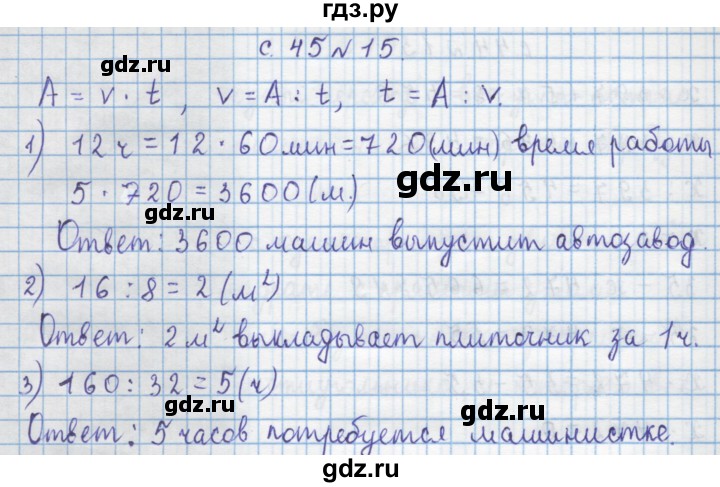 гдз.ру
с. 45 № 15.
gdz.ru gdz.ru
A = v · t , v = A : t, t = A : v.
1) 12 ч = 12 · 60 мин = 720 (мин) время работы
5 · 720 = 3600 (м.) gdz.ru
Ответ: 3600 машин выпустит автозавод.
2) 16 : 8 = 2 (м²)
gdz.ru
Ответ: 2 м² выкладывает плиточник за 1 ч.
3) 160 : 32 = 5 (ч)
gdz.ru gdz.ru
Ответ: 5 часов потребуется машинистке.
gdz.ru